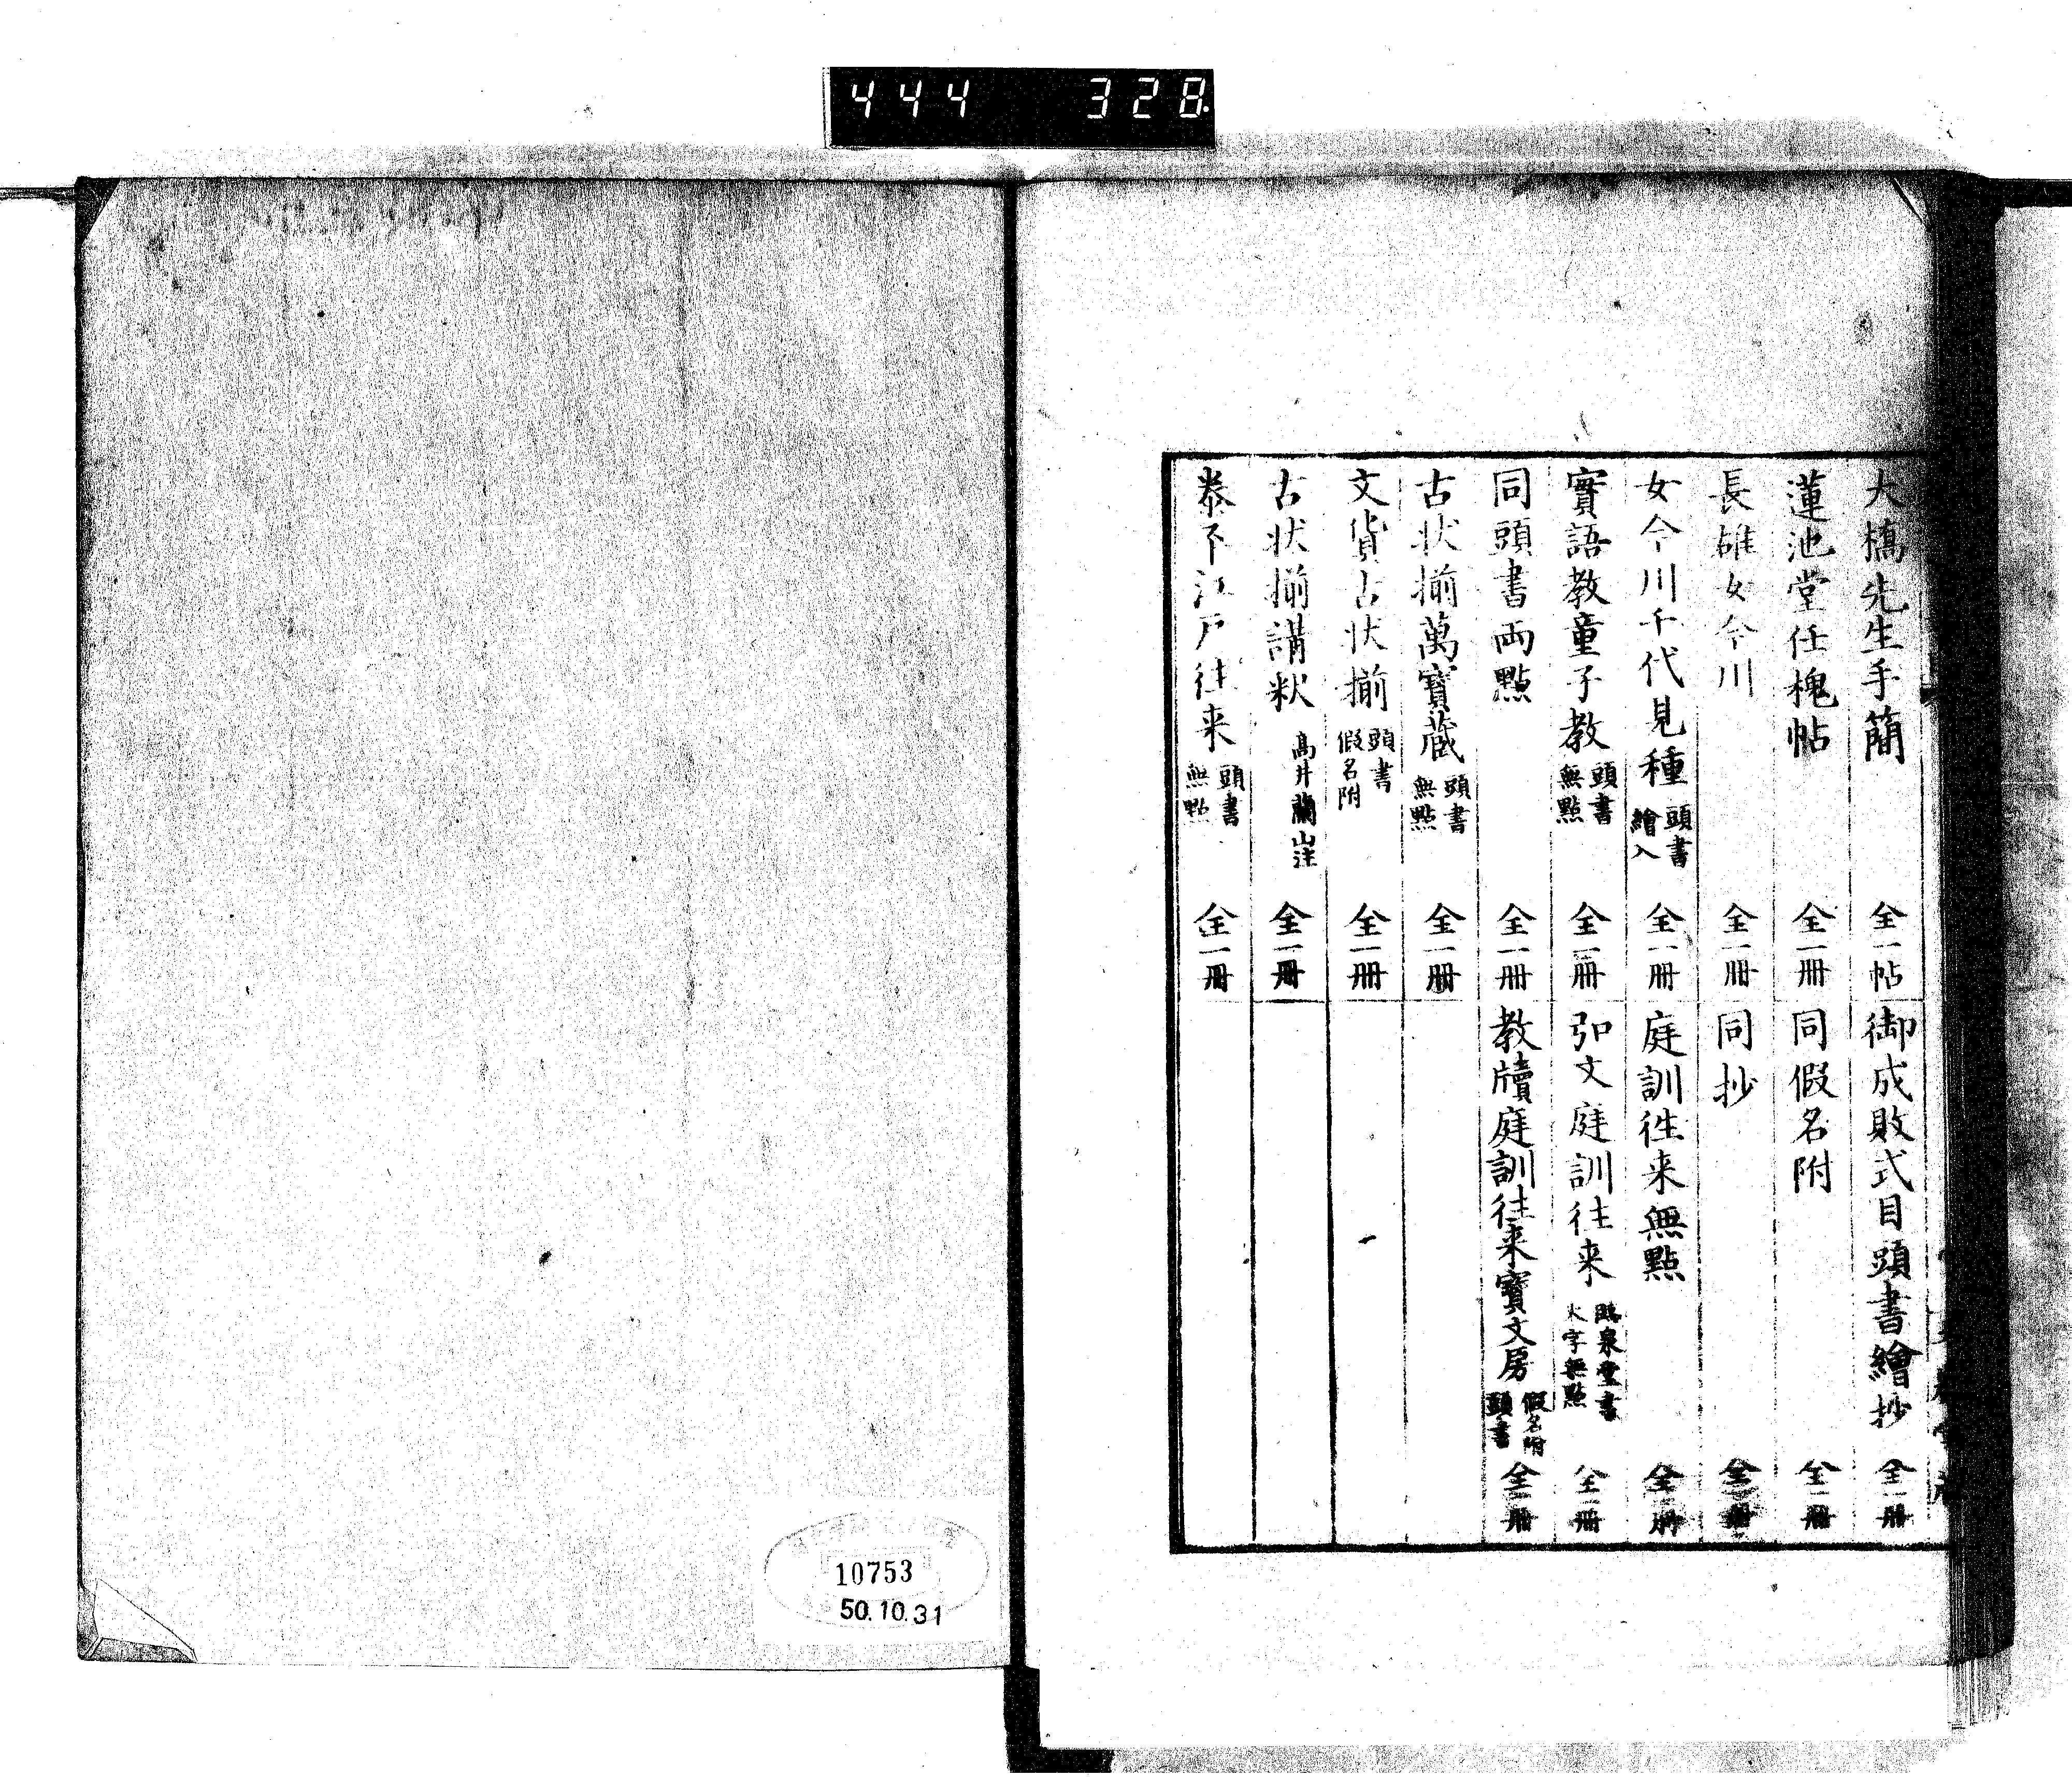 444 328
大橋先生手簡 全一帖
蓮池堂任槐帖 全一冊
長雄女今川 全一冊
女今川千代見種 頭書繪入 全一冊
實語教童子教 頭書無點 全一冊
同頭書両點 全一冊
古状揃萬寶蔵 頭書無點 全一冊
文貨古状揃 頭書假名附 全一冊
古状揃講釈 高井蘭山注 全一冊
泰平江戸往来 頭書無點 全一冊
御成敗式目頭書繪抄 全一冊
同假名附 全一冊
同抄 全一冊
庭訓徃来無點 全一冊
弘文庭訓往来 臨泉堂書大字無點 全一冊
教牘庭訓往来寳文房 假名附頭書 全一冊
10753
50.10.31